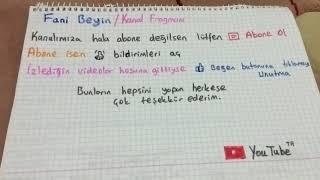 Fani Beyin / Kanal Fragmanı
Kanalımıza hala abone değilsen lütfen Abone Ol
Abone isen bildirimleri aç
İzlediğin videolar hoşuna gittiyse Beğen butonuna tıklamayı
Unutma
Bunların hepsini yapan herkese
çok teşekkür ederim.
YouTube TR